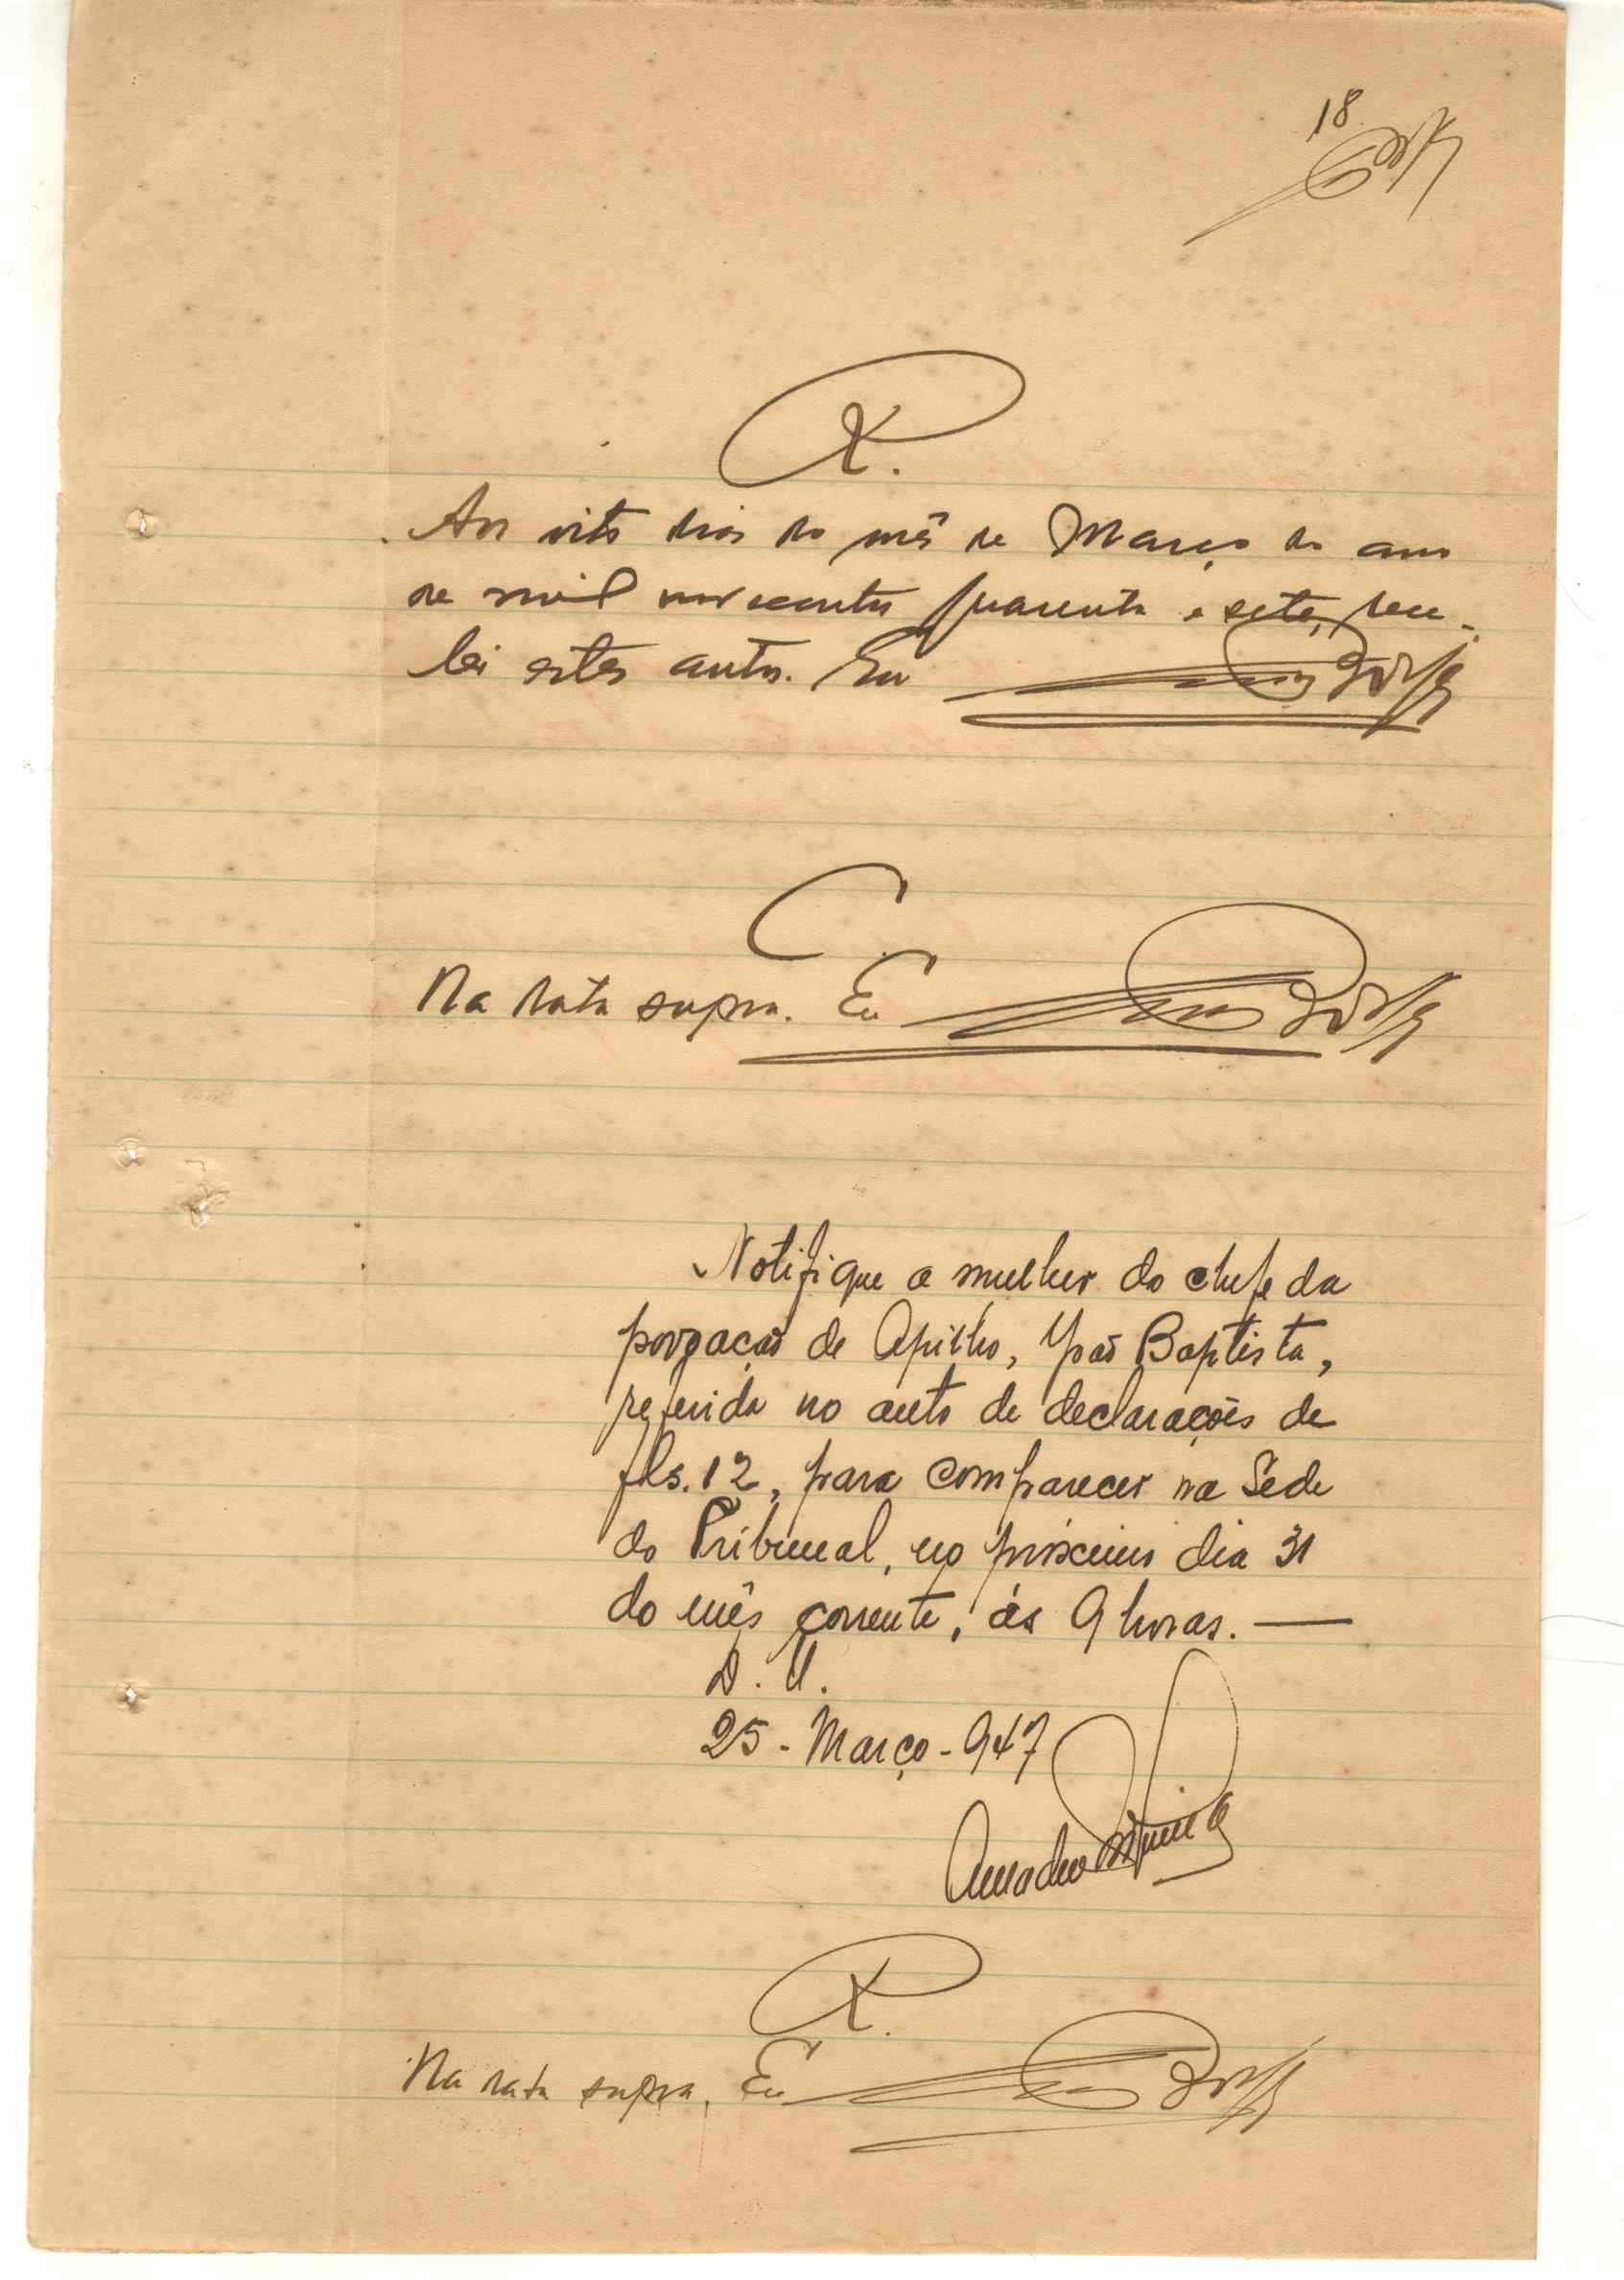 18
R.
Aos vito dias do mês de Março do ano
de mil novecentos quarenta e sete, rece-
bi estes autos. Eu
C.
Na data supra. Eu
Notifique a mulher do chefe da
povoação de Apilho, João Baptista,
referida no auto de declarações de
fls. 12, para comparecer na Sede
do Tribunal, no próximo dia 31
do mês corrente, ás 9 horas. —
D. U.
25 - Março - 947
R.
Na data supra, Eu